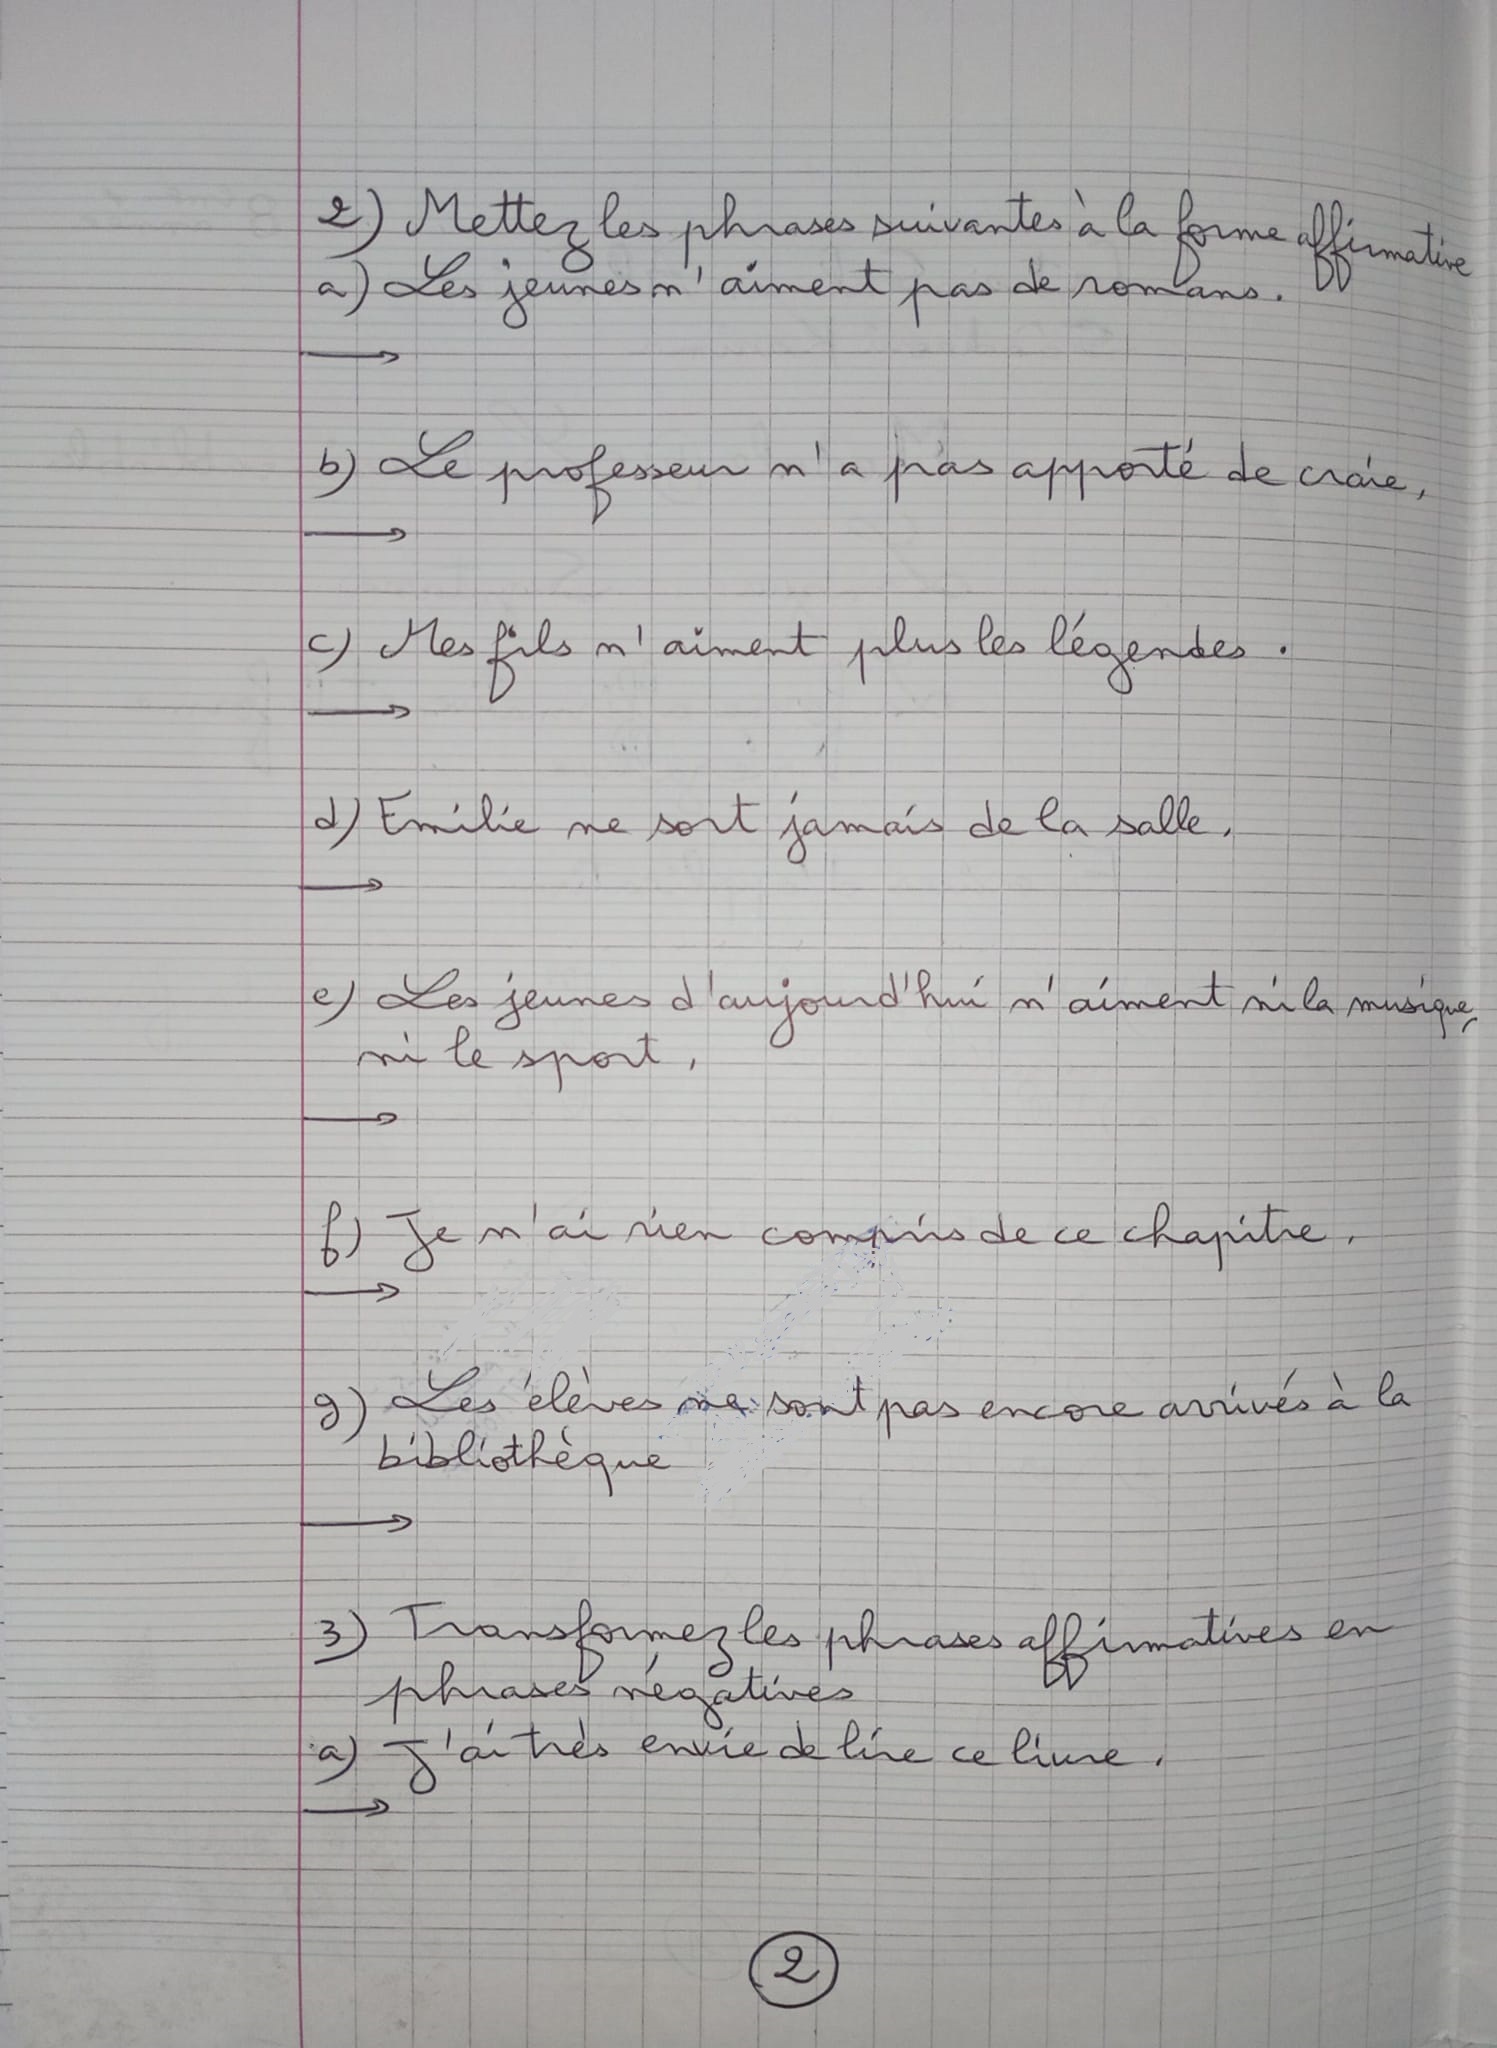 2) Mettez les phrases suivantes à la forme affirmative
a) Les jeunes n'aiment pas de romans.
→
b) Le professeur n'a pas apporté de craie.
→
c) Mes fils n'aiment plus les légendes.
→
d) Emilie ne sort jamais de la salle.
→
e) Les jeunes d'aujourd'hui n'aiment ni la musique,
ni le sport.
→
f) Je n'ai rien compris de ce chapitre.
→
g) Les élèves ne sont pas encore arrivés à la
bibliothèque
→
3) Transformez les phrases affirmatives en
phrases négatives
a) J'ai très envie de lire ce livre.
→
2